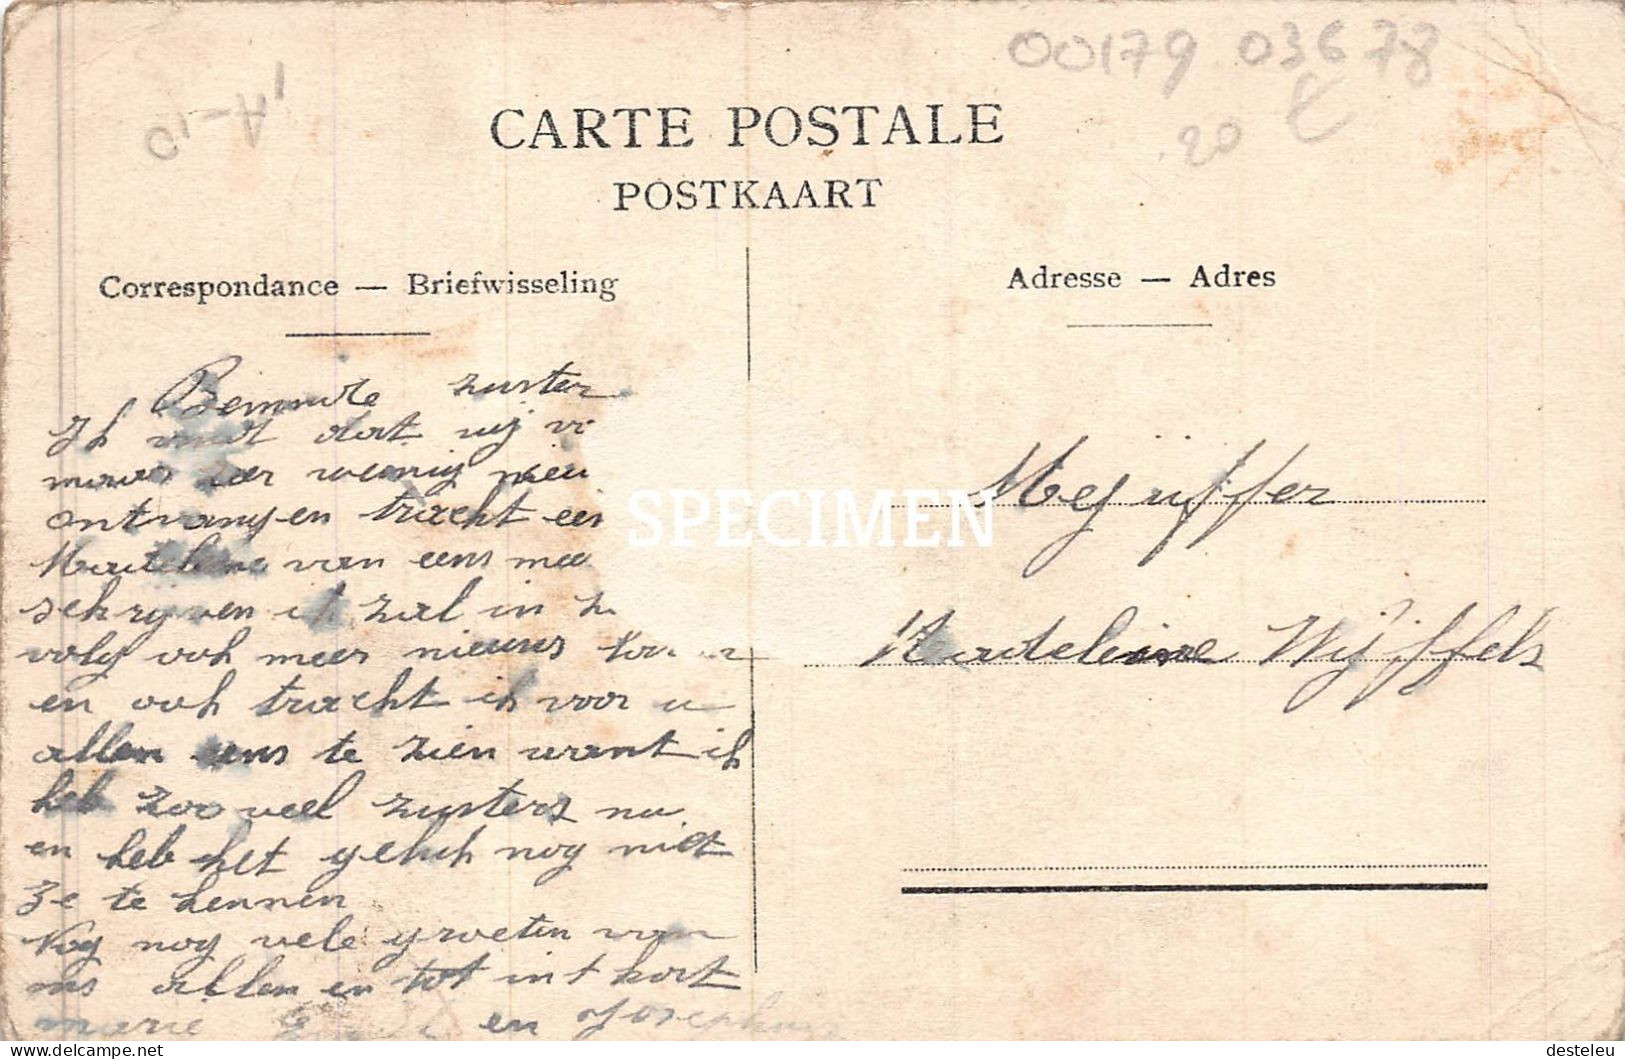 00179 03678
.20 €
CARTE POSTALE
POSTKAART
Correspondance — Briefwisseling
Adresse — Adres
Beminde zuster
Ik vindt dat wij
zeer wenig
ontvangen tracht
van eens
schrijven ik zal in
volg ook meer nieuws
en ook tracht ik voor u
allen eens te zien want ik
heb zoo veel zusters nu
en heb het geluk nog niet
ze te kennen
Nog nog vele groeten van
ons allen en tot int kort
marie en Josephus
Mejuffer
Madeleine Wijffels
SPECIMEN
delcampe.net
desteleu